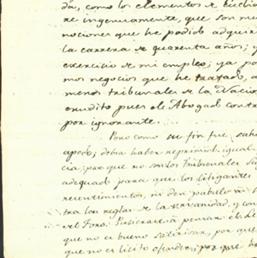 da, como los elementos de Euclid
re ingenuamente, que son me
nociones que he podido adquir
la carrera de quarenta años; y
exercicio de mi empleo; ya po
mos negocios que he tratado, a
menos tribunales de la Nacio
erudito pues el Abogado contr
por ignorante.
Pero como su fin fue
apodo; debia haber reprimido igual
cia, por que no son los Tribunales
adequado para que los litigantes
resentimientos, ni den pabulo
tra las reglas de la urbanidad, y con
el Foro.
que no es bueno satirizar, por que
que no es licito ofender, por que